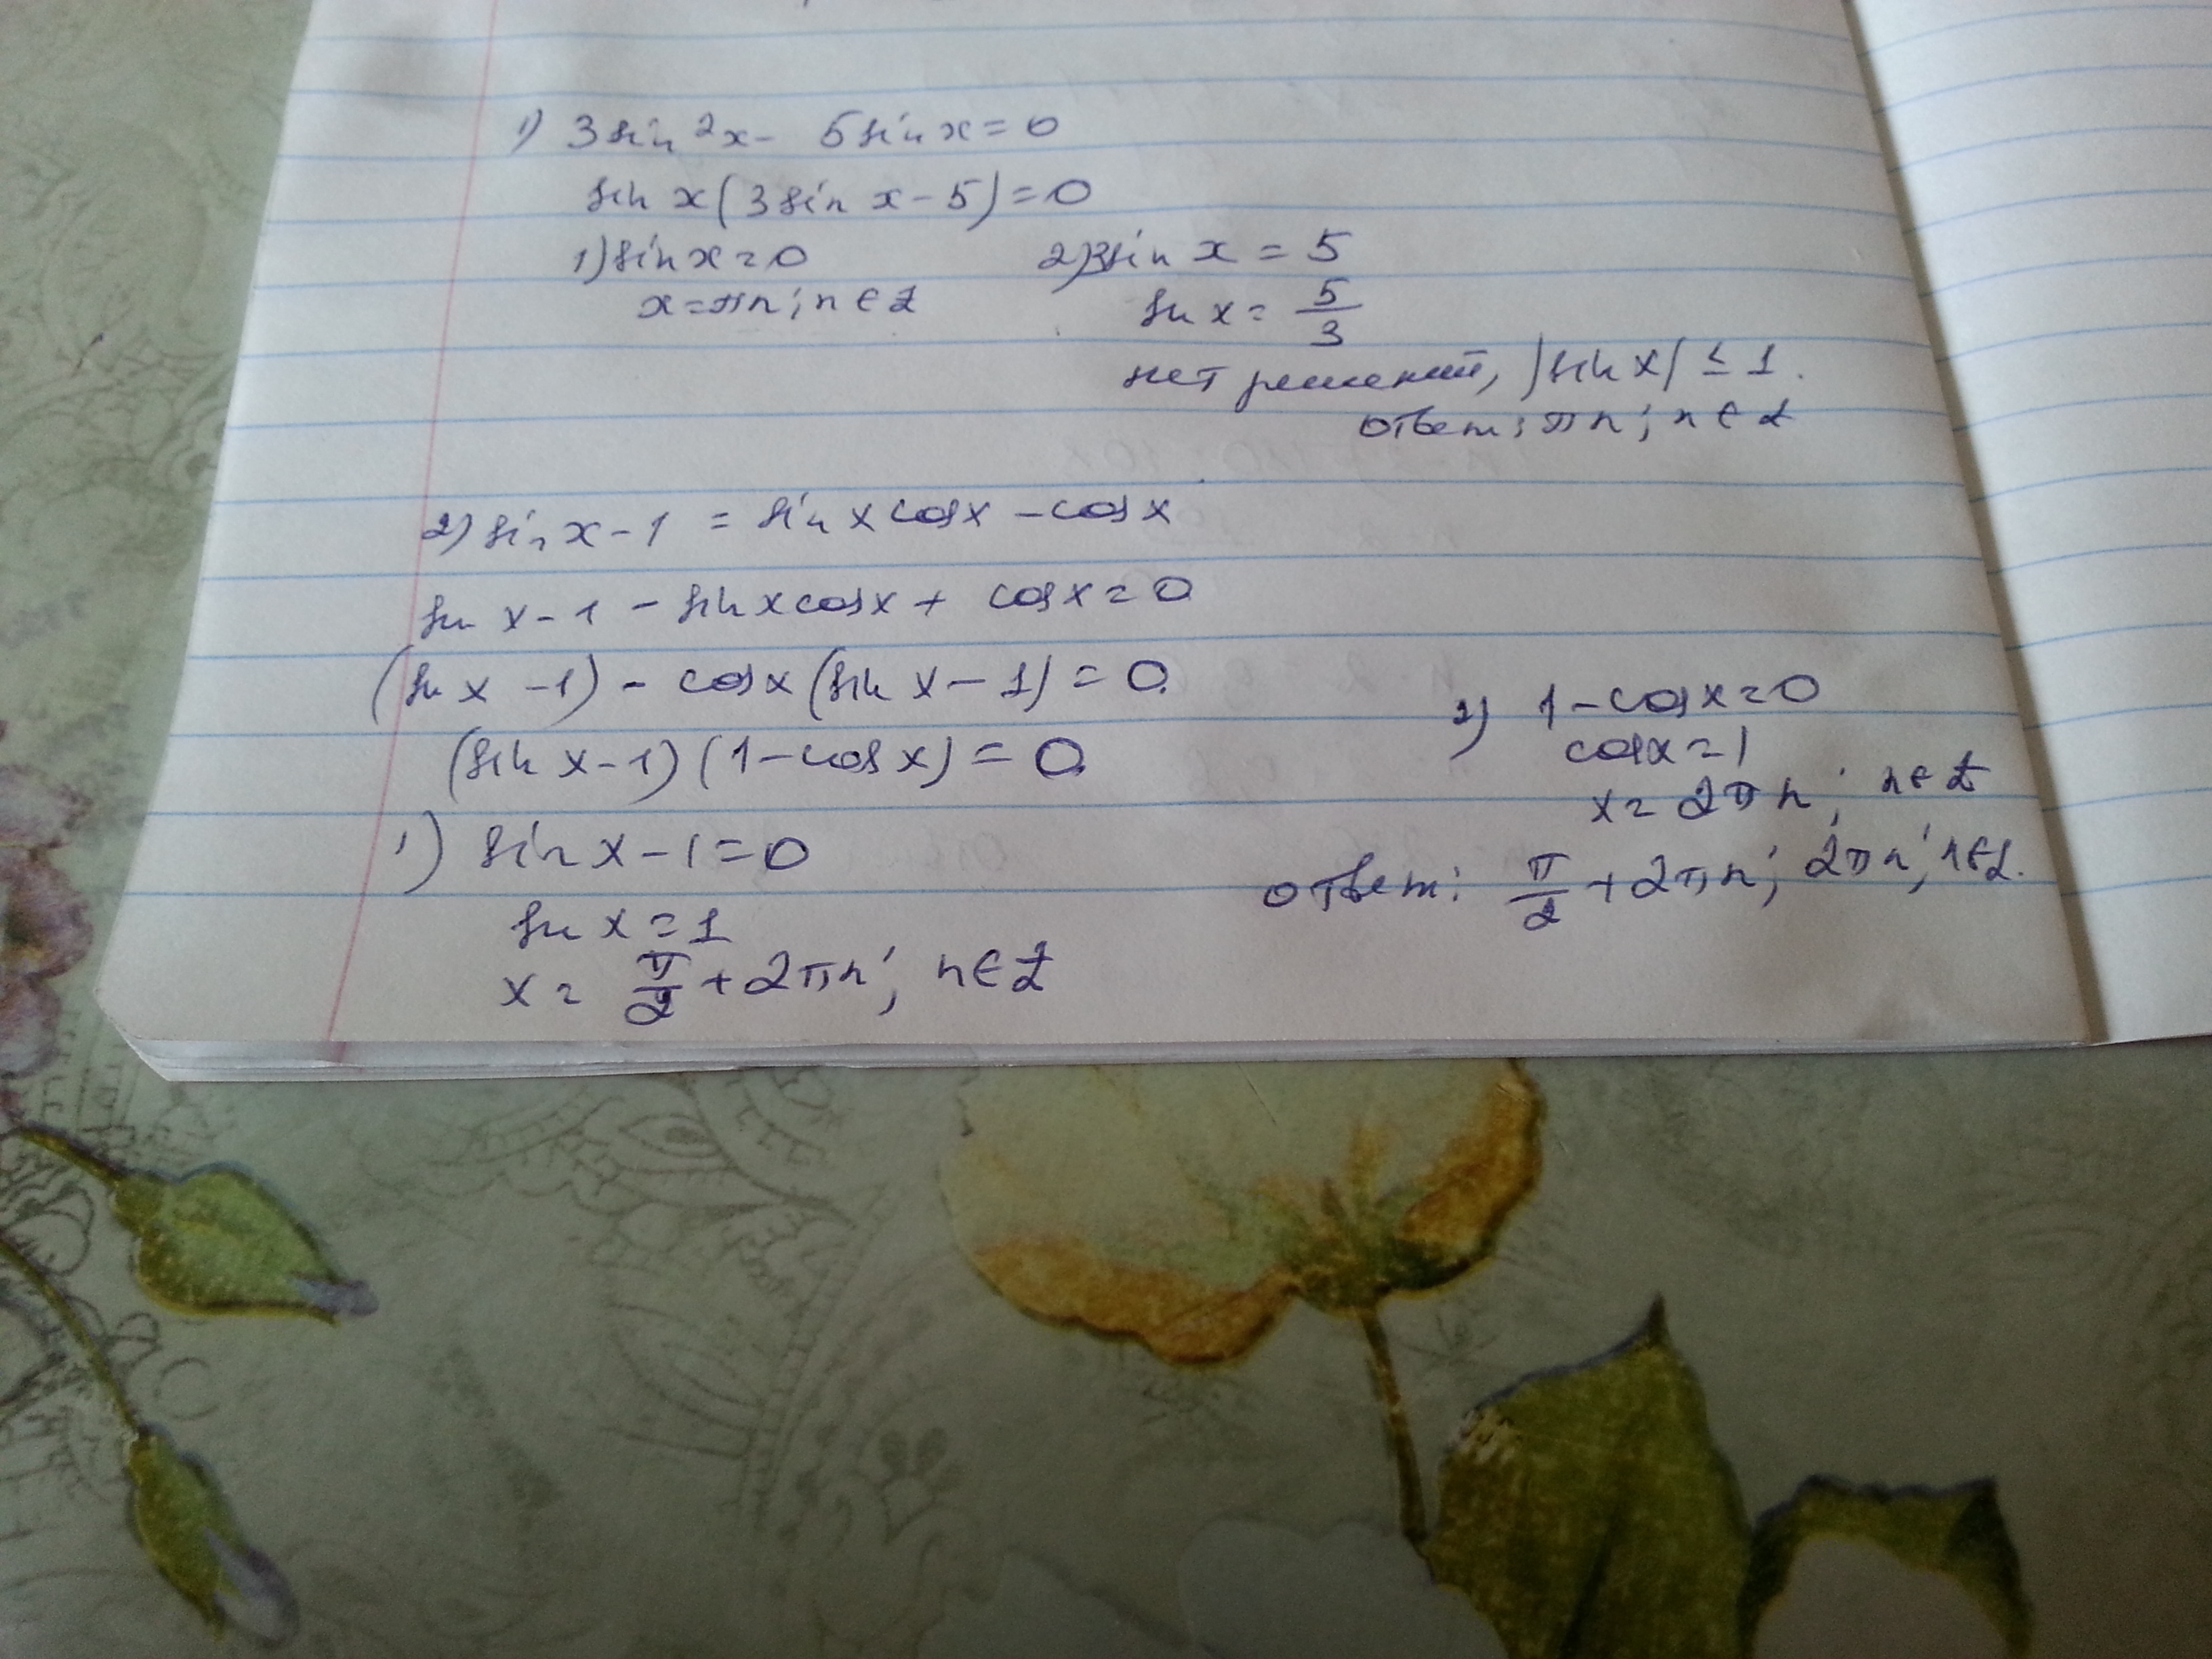 1) 3sin²x - 5sinx=0
sin x(3sin x-5)=0
1)sinx=0
x=πn; n∈Z
2)3sin x = 5
sin x = 5/3
нет решений, |sin x| ≤ 1.
ответ: πn; n∈Z
2) sin x-1 = sin x cosx - cosx
sin x-1 - sin x cosx + cosx=0
(sin x -1) - cosx(sin x-1)=0
(sin x-1)(1-cosx)=0
1) sin x-1=0
sin x=1
x= π/2 +2πn; n∈Z
2) 1-cosx=0
cosx=1
x=2πn; n∈Z
ответ: π/2 +2πn; 2πn; n∈Z.